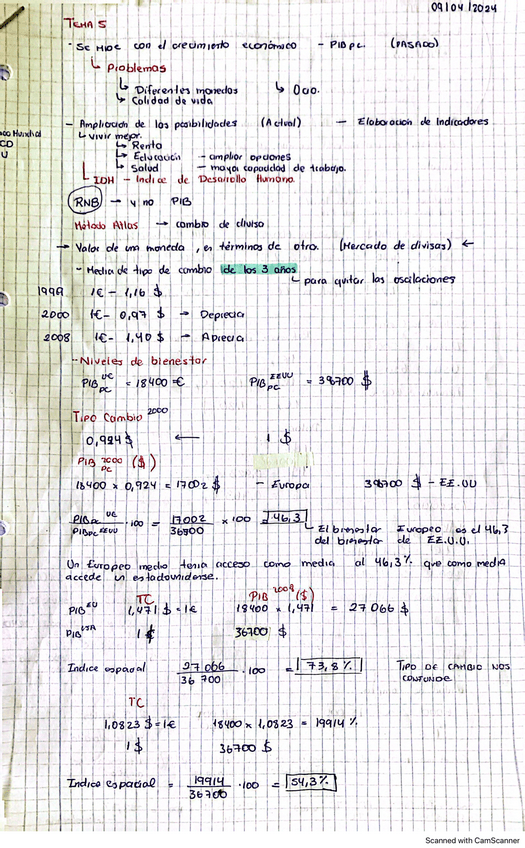 09/04/2024
TEMA 5
- Se mide con el crecimiento económico - PIB pc (PASADO)
Problemas
Diferentes monedas
Ocio.
Calidad de vida
- Ampliación de las posibilidades (Actual) - Elaboración de Indicadores
vivir mejor.
Renta
Educación - ampliar opciones
Salud - mayor capacidad de trabajo.
IDH - Indice de Desarrollo Humano.
CD
U
RNB → y no PIB
Método Atlas → cambio de divisa
→ Valor de una moneda, en términos de otra. (Mercado de divisas) ←
- Media de tipo de cambio de los 3 años
para quitar las oscilaciones
1999 1€ - 1,16 $
2000 1€ - 0,97 $ → Deprecia
2008 1€ - 1,40 $ → Aprecia
- Niveles de bienestar
PIB pc UE = 18400 € PIB pc EEUU = 38700 $
Tipo Cambio 2000
0,924 $ ← 1 $
PIB pc 2000 ($)
18400 x 0,924 = 17002 $ - Europa 38700 $ - EE.UU
PIB pc UE / PIB pc EEUU · 100 = 17002 / 36700 x 100 46,3
El bienestar Europeo es el 46,3
del bienestar de EE.U.U.
Un Europeo medio tenia acceso como media al 46,3% que como media
accede un estadounidense.
TC PIB 2008 ($)
PIB EU 1,471 $ = 1€ 18400 x 1,471 = 27066 $
PIB USA 1 $ 36700 $
Indice espacial 27066 / 36700 · 100 = 73,8% TIPO DE CAMBIO NOS
CONFUNDE
TC
1,0823 $ = 1€ 18400 x 1,0823 = 19914 %
1 $ 36700 $
Indice espacial = 19914 / 36700 · 100 = 54,3%
Scanned with CamScanner